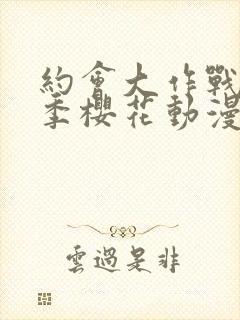 約會大作戰
季櫻花動漫
雲過是非